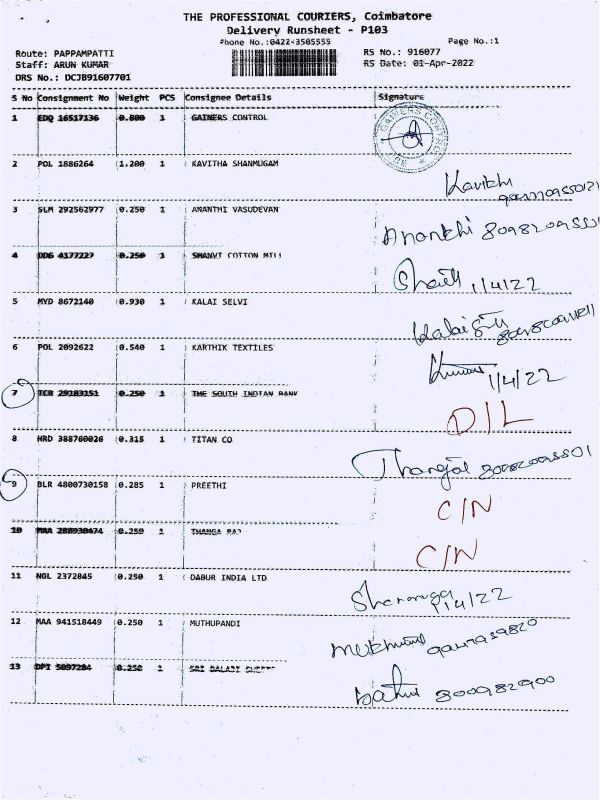 THE PROFESSIONAL COURIERS, Coimbatore
Delivery Runsheet - P103
Phone No.:0422-3505555 Page No.:1
Route: PAPPAMPATTI RS No.: 916077
Staff: ARUN KUMAR RS Date: 01-Apr-2022
DRS No.: DCJB91607701
S No Consignment No Weight PCS Consignee Details Signature
1 EDQ 16517136 0.800 1 GAINERS CONTROL
2 POL 1886264 1.200 1 KAVITHA SHANMUGAM
3 SLM 292562977 0.250 1 ANANTHI VASUDEVAN
Ananthi
4 DDG 4177227 0.250 1 SHANVI COTTON MILL
1/4/22
5 MYD 8672140 0.930 1 KALAI SELVI
6 POL 2092622 0.540 1 KARTHIK TEXTILES
1/4/22
7 TCR 29183151 0.250 1 THE SOUTH INDIAN BANK
D/L
8 HRD 388760026 0.315 1 TITAN CO
9 BLR 4800730158 0.285 1 PREETHI
C/N
10 MAA 288930474 0.250 1 THANGA RAJ
C/N
11 NGL 2372845 0.250 1 DABUR INDIA LTD
1/4/22
12 MAA 941518449 0.250 1 MUTHUPANDI
13 DPI 5097284 0.250 1 SRI BALAJI